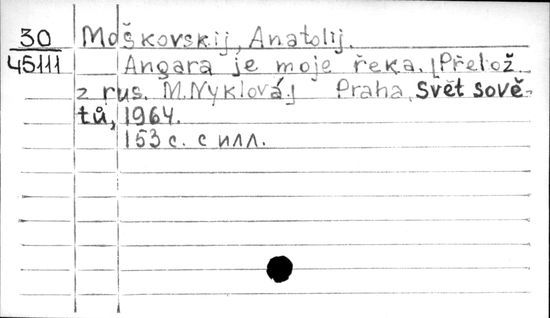 30 Moškovskij, Anatolij.
45111 Angara je moje řeka. [Přelož.
z rus. M. Nyklová.] Praha, Svět Sově-
tů, 1964.
153 с. с илл.